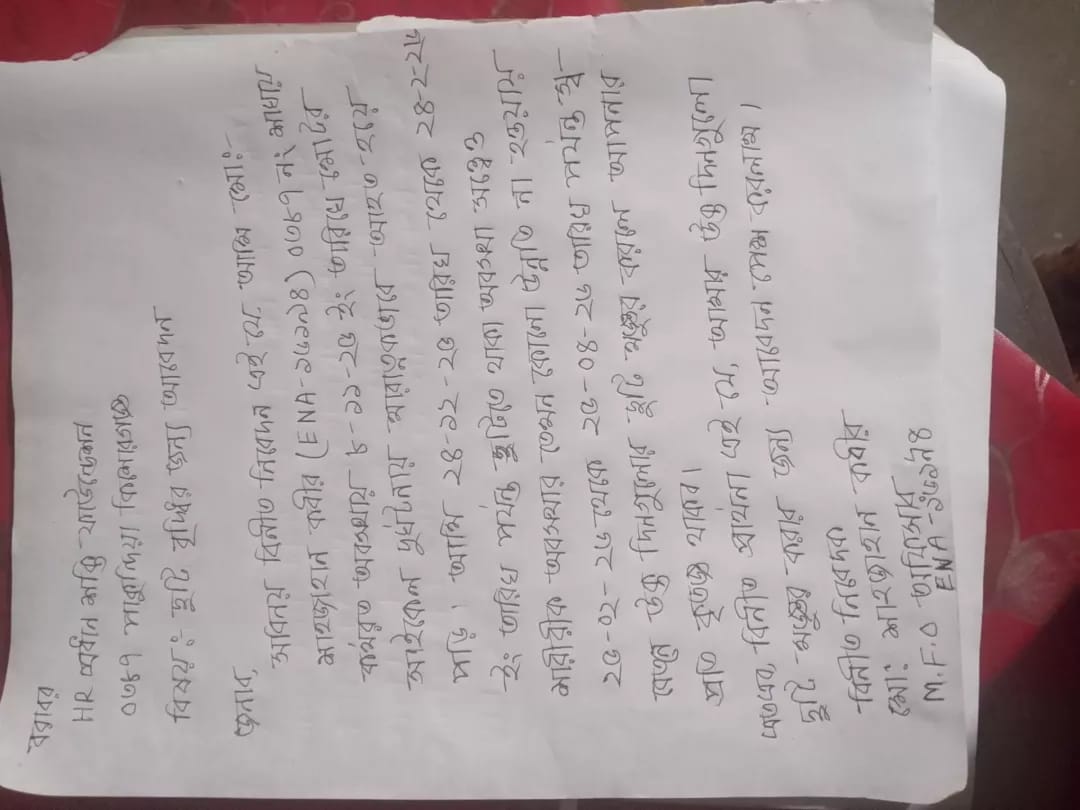 বরাবর
HR পল্লী শক্তি ফাউন্ডেশন
০৭৪৭ পাকুন্দিয়া কিশোরগঞ্জ
বিষয়ঃ ছুটি বৃদ্ধির জন্য আবেদন
জনাব,
সবিনয় বিনীত নিবেদন এই যে, আমি মোঃ-
শাহজাহান কবীর (ENA-১৫৯৯৪) ০৭৪৭ নং শাখায়
কর্মরত অবস্থায় ৮-১১-২৫ ইং তারিখে মোটর
সাইকেল দুর্ঘটনায় মারাত্নকভাবে আহত হয়ে
পড়ি। আমি ২৪-১২-২৫ তারিখ থেকে ২৪-২-২৬
ইং তারিখ পর্যন্ত ছুটিতে থাকা অবস্থা সত্ত্বেও
শারীরীক অবস্থার তেমন কোনো উন্নতি না হওয়ায়
২৫-০২-২৬ থেকে ২৫-০৪-২৬ তারিখ পর্যন্ত অ-
সুস্থ উক্ত দিনগুলোর ছুটি মঞ্জুর করলে আপনার
প্রতি কৃতজ্ঞ থাকব।
অতএব বিনীত প্রার্থনা এই যে, আমার উক্ত দিনগুলো
ছুটি মঞ্জুর করার জন্য আবেদন পেশ করলাম।
বিনীত নিবেদক
মোঃ শাহজাহান কবীর
M.F.O অফিসার
ENA-১৫৯৯৪